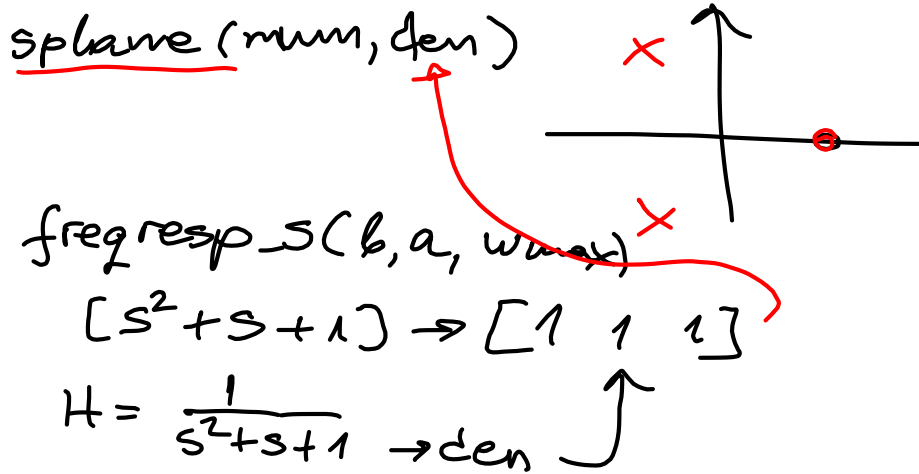 splane (num, den)
freqresp_s(b, a, wmax)
[s²+s+1] → [1 1 1]
H = 1
s²+s+1 → den